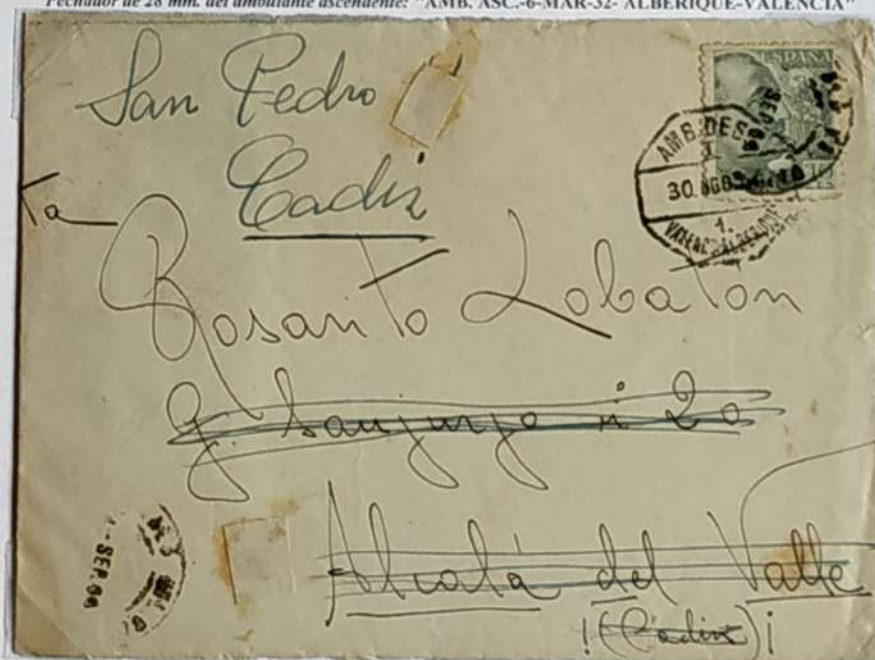 Fechador de 28 mm. del ambulante ascendente: "AMB. ASC.-6-MAR-32- ALBERIQUE-VALENCIA"
San Pedro
Cadiz
Ta
Rosanto Lobaton
G. Sanjurjo i 20
Alcalá del Valle
!(Cadiz)¡
ESPAÑA
AMB. DES
30. AGO
1.
VALENCIA ALBERIQUE
SEP. 66
- SEP. 66